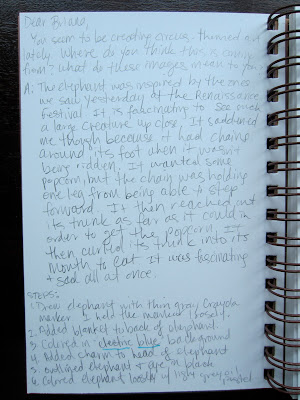 Dear
You seem to be creating circus themed art
lately. Where do you think this is coming
from? What do these images mean to you
A: The elephant was inspired by the ones
we saw yesterday at the Renaissance
Festival. It is fascinating to see such
a large creature up close. It saddened
me though because it had chains
around its foot when it wasn't
being ridden. It wanted some
popcorn, but the chain was holding
one leg from being able to step
forward. It then reached out
its trunk as far as it could in
order to get the popcorn. It
then curled its trunk into its
mouth to eat. It was fascinating
+ sad all at once.
STEPS:
1. Drew elephant with thin gray Crayola
marker. I held the marker loosely.
2. Added blanket to back of elephant.
3. Colored in electric blue background
4. Added charm to head of elephant
5. outlined elephant + eye in black
6. Colored elephant loosely w/ light gray oil
pastel